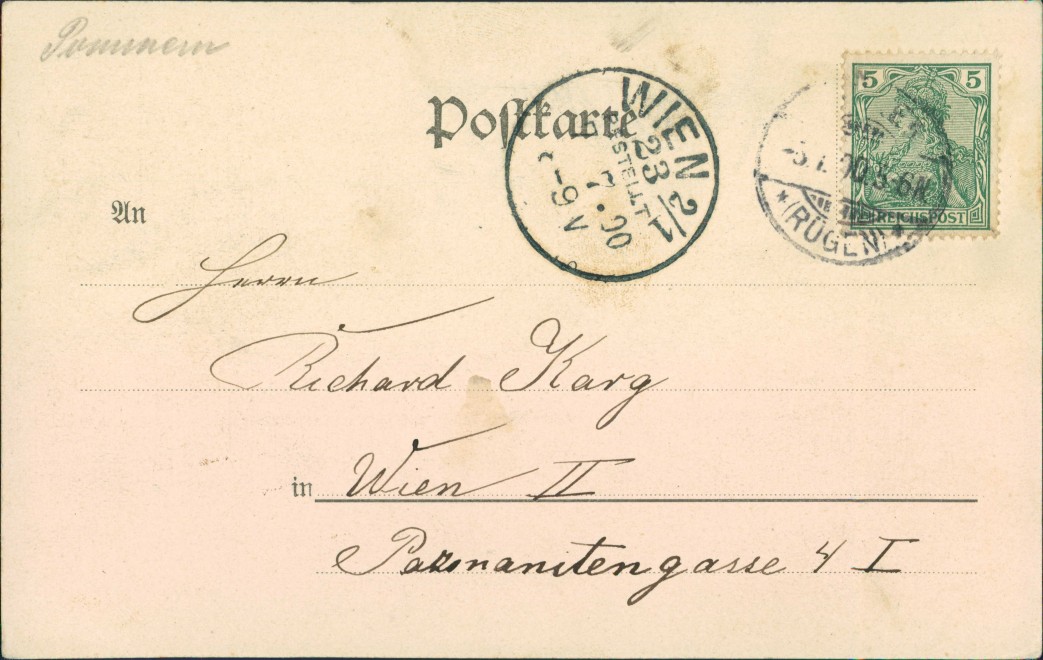 Pommern
Postkarte
WIEN 2/1
BESTELLT
23
7.00
9 V
5 5
REICHSPOST
(RÜGEN)
An
Herrn
Richard Karg
in Wien II
Pazmanitengasse 4 I